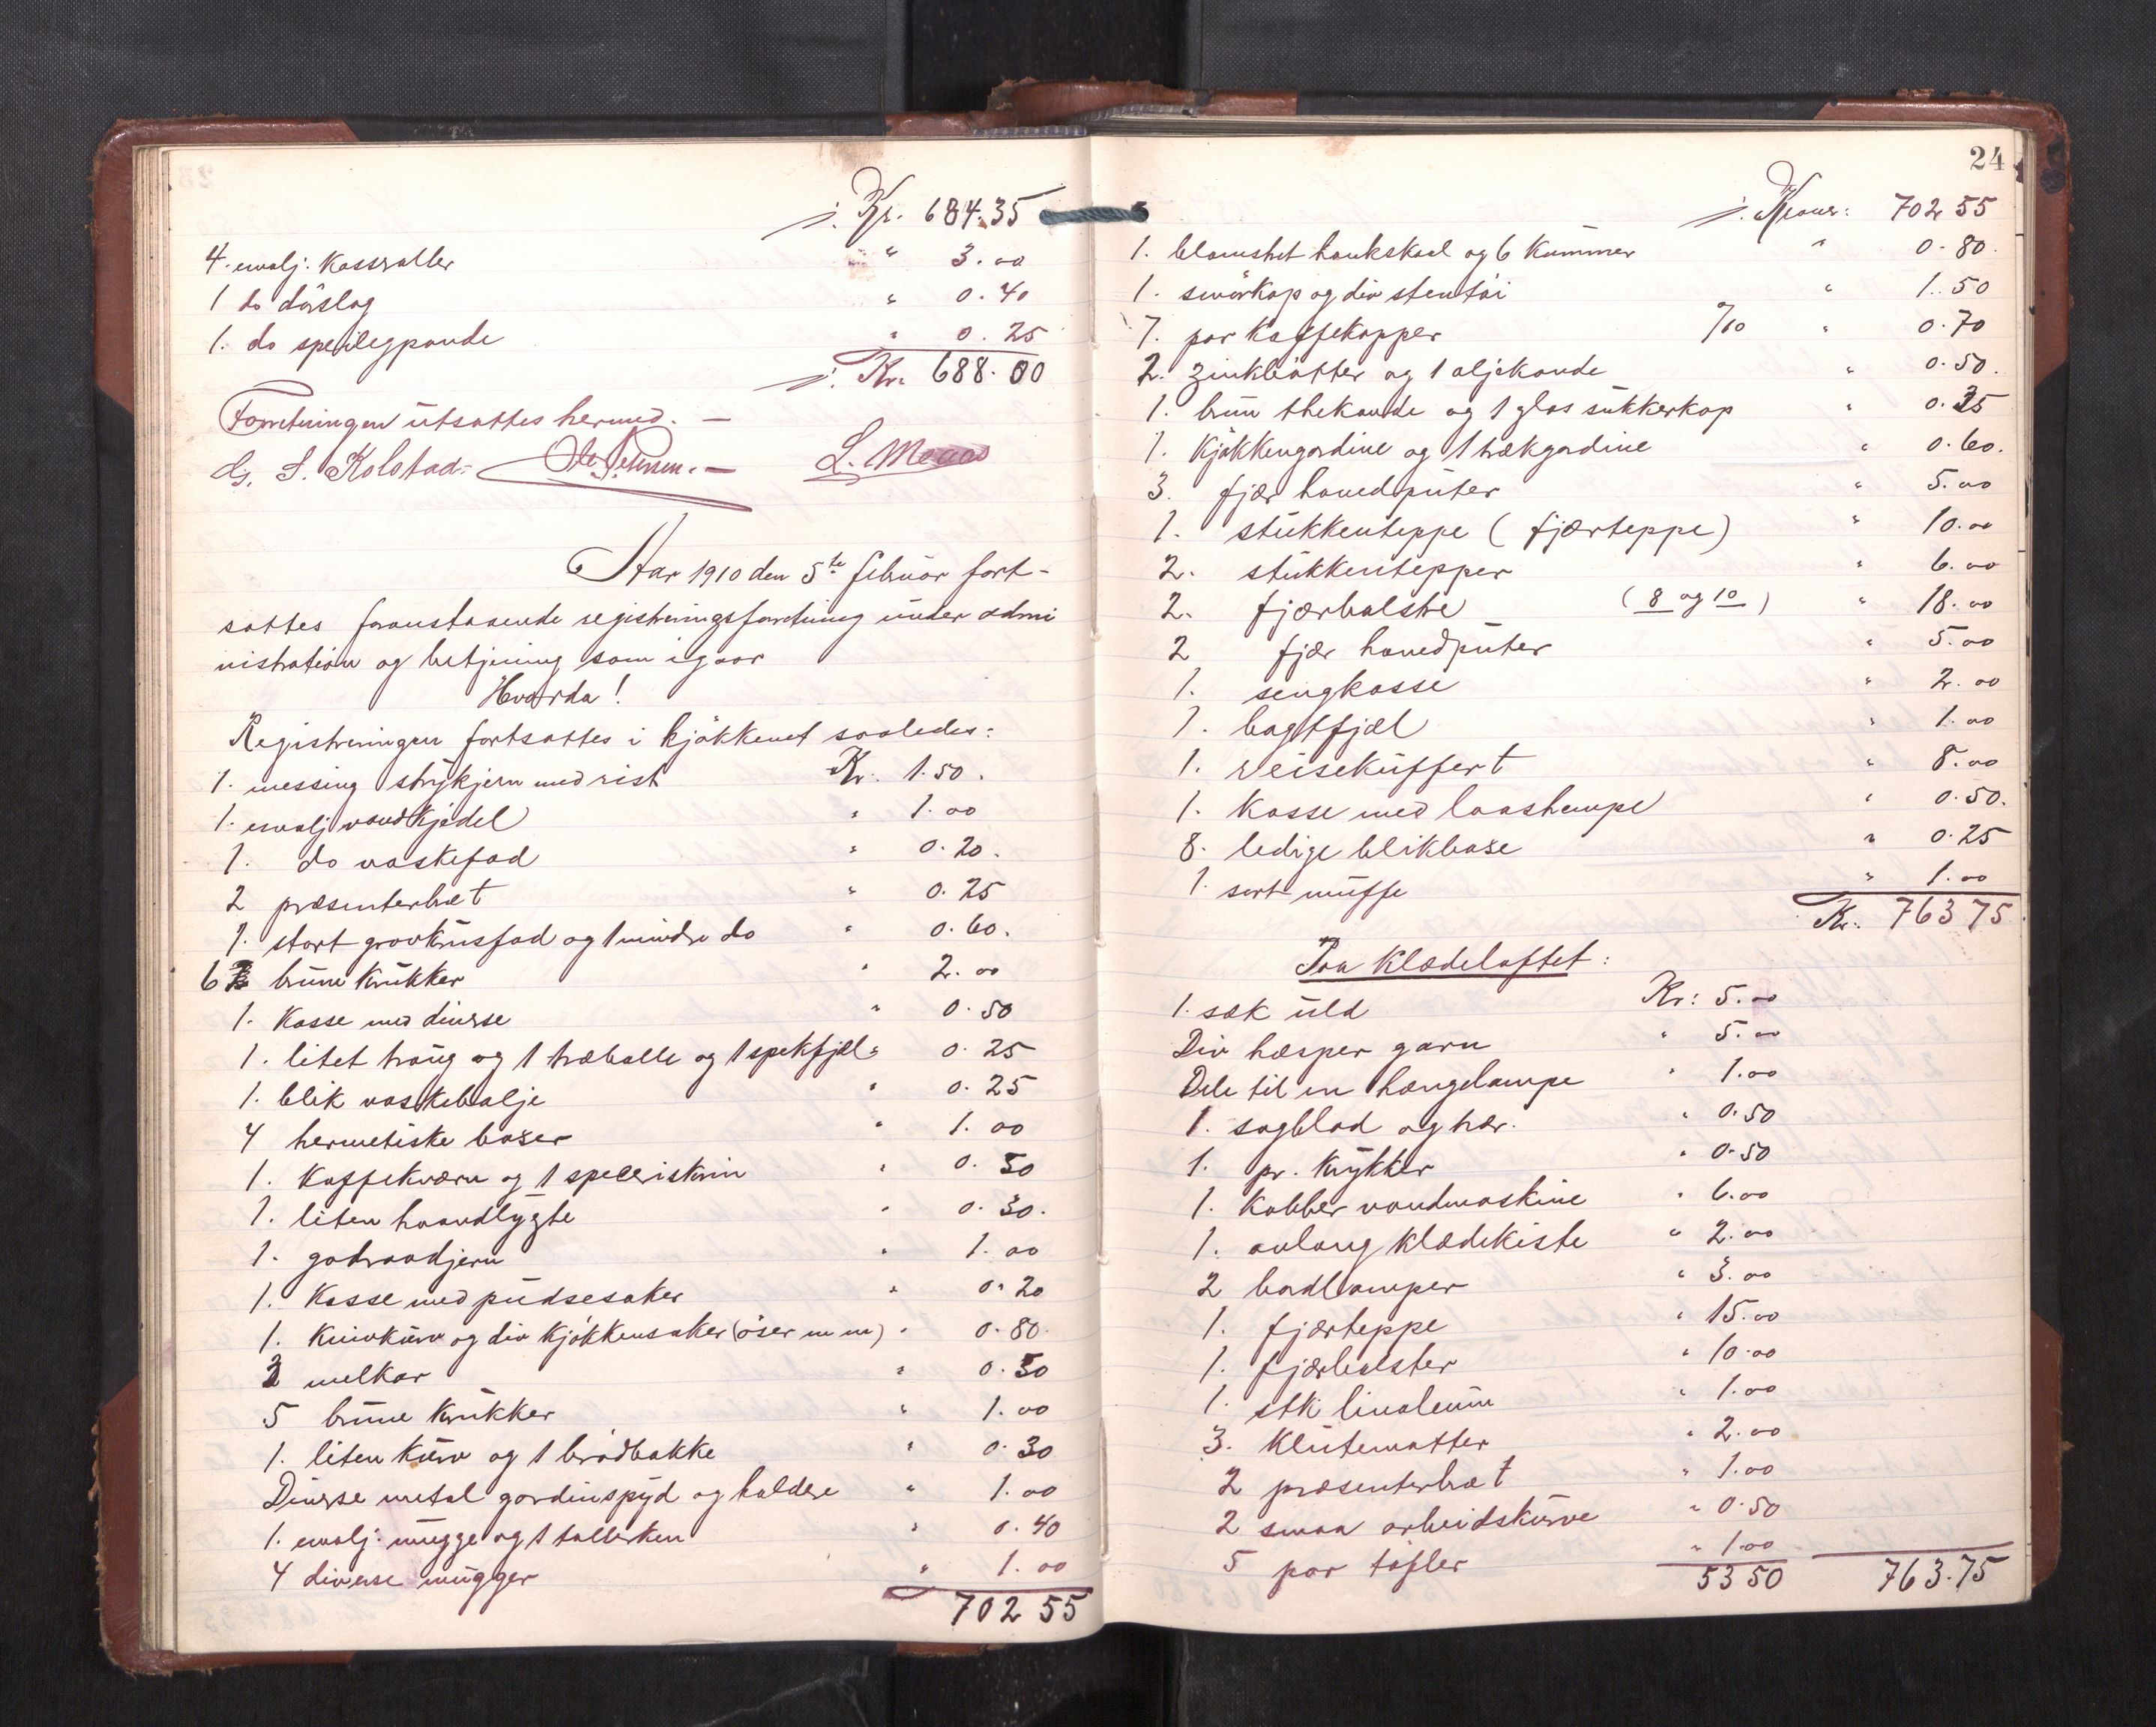 ÷ Kr. 684.35
4. emalj: Kasseroller " 3.00
1 do dörslag " 0.40
1. do speilegpande " 0.25
÷ Kr. 688.00
Forretningen utsattes hermed. —
G. S. Kolstad. Ole Petersen. — L. Moaas
Aar 1910 den 5te februar fort-
sattes foranstaaende registreringsforretning under admi
nistration og betjening som igaar
Hvorda!
Registreringen fortsattes i kjökkenet saaledes:
1. messing strykjern med rist Kr. 1.50.
1. emalj vandkjedel " 1.00
1. do vaskefad " 0.20.
2 præsenterbræt " 0.25
1. stort grovbrusfad og 1 mindre do " 0.60.
6 brune krukker " 2.00
1. Kasse med diverse " 0.50
1. litet traug og 1 træballe og 1 spekfjæl " 0.25
1. blik vaskebalje " 0.25
4 hermetiske boxer " 1.00
1. Kaffekværn og 1 speceriskrin " 0.50
1. liten haandlygte " 0.30.
1. gobraadjern " 1.00
1. Kasse med pudsesaker " 0.20
1. Knivkurv og div kjökkensaker (öser m m) " 0.80.
3 melkar " 0.30
5 brune krukker " 1.00
1. liten kurv og 1 brödbakke " 0.30
Diverse metal gardinspyd og holdere " 1.00
1. emalj: mugge og 1 tallerken " 0.40
4 diverse mugger " 1.00
702 55
24
÷ Kroner: 702 55
1. blomstret hankskaal og 6 kummer " 0.80.
1. smörkop og div stentöi " 1.50
7. par Kaffekopper %10 " 0.70
2. zinkbötter og 1 oljekande " 0.50.
1. brun thekande og 1 glas sukkerkop " 0.35
1. Kjökkengardine og 1 trækgardine " 0.60.
3. fjær hovedputer " 5.00
1. stukkenteppe (fjærteppe) " 10.00
2. stukkentepper " 6.00
2. fjærbolstre (8 og 10) " 18.00
2 fjær hovedputer " 5.00
1. sengkasse " 2.00
1. bagtfjæl " 1.00
1. reisekuffert " 8.00
1. Kasse med laastrempe " 0.50.
8. ledige blikboxe " 0.25
1. sort muffe " 1.00
Kr. 763 75
Paa Klædeloftet:
1. sæk uld Kr: 5.00
Div hæsper garn " 5.00
Dele til en hængelampe " 1.00
1. sagblad og hær. " 0.50
1. pr. Krykker " 0.50
1. Kobber vandmaskine " 6.00
1. avlang klædekiste " 2.00
2 bordlamper " 3.00
1. fjærteppe " 15.00
1. fjærbolster " 10.00
1. stk linoleum " 1.00
3. Klutematter " 2.00
2 præsenterbræt " 1.00
2 smaa arbeidskurve " 0.50
5 par töfler " 1.00
53 50 763.75